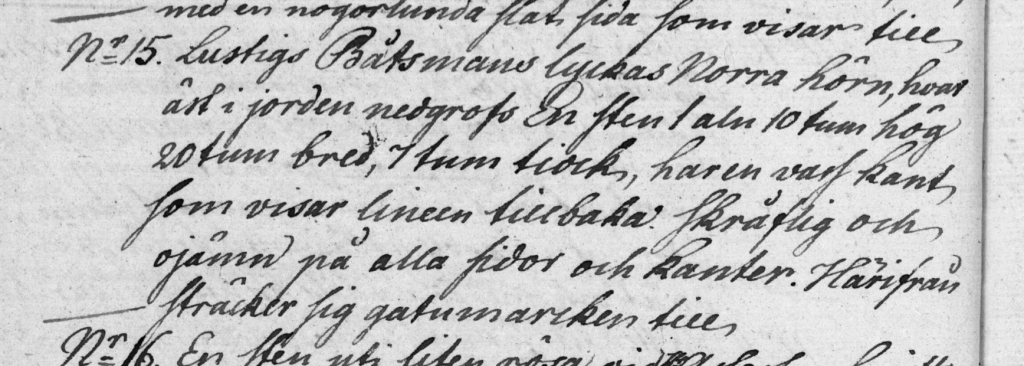 med en någorlunda slat sida som visar till
Nr 15. Lustigs Båtsmans lyckas Norra hörn, hvar
äst i jorden nedgrofs En sten 1 aln 10 tum hög
20 tum bred, 7 tum tiock, har en vass kant
som visar lineen tillbaka. Skräflig och
ojämn på alla sidor och kanter. Härifrån
sträcker sig gatumarcken till
Nr 16. En sten uti liten rösa